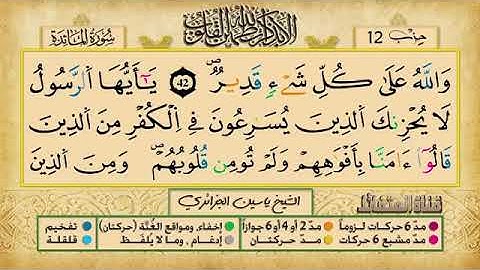 حزب 12 ألا بذكر الله تطمئن القلوب سورة المائدة
وَاللَّهُ عَلَىٰ كُلِّ شَےْءٍ قَدِيرٌ ۖ 42 يَـٰٓأَيُّهَا اَ۬لرَّسُولُ
لَا يُحْزِنكَ اَ۬لذِينَ يُسَـٰرِعُونَ فِے اِ۬لْكُفْرِ مِنَ اَ۬لذِينَ
قَالُوٓاْ ءَامَنَّا بِأَفْوَٰهِهِمْ وَلَمْ تُومِن قُلُوبُهُمْ ۖ وَمِنَ اَ۬لذِينَ
قناة الشيخ ياسين الجزائري
مدّ 6 حركات لزوماً مدّ 2 أو 4 أو 6 جوازاً إخفاء، ومواقع الغُنَّة (حركتان) تفخيم
مدّ مشبع 6 حركات مدّ حركتان إدغام، وما لا يُلفَظ قلقلة